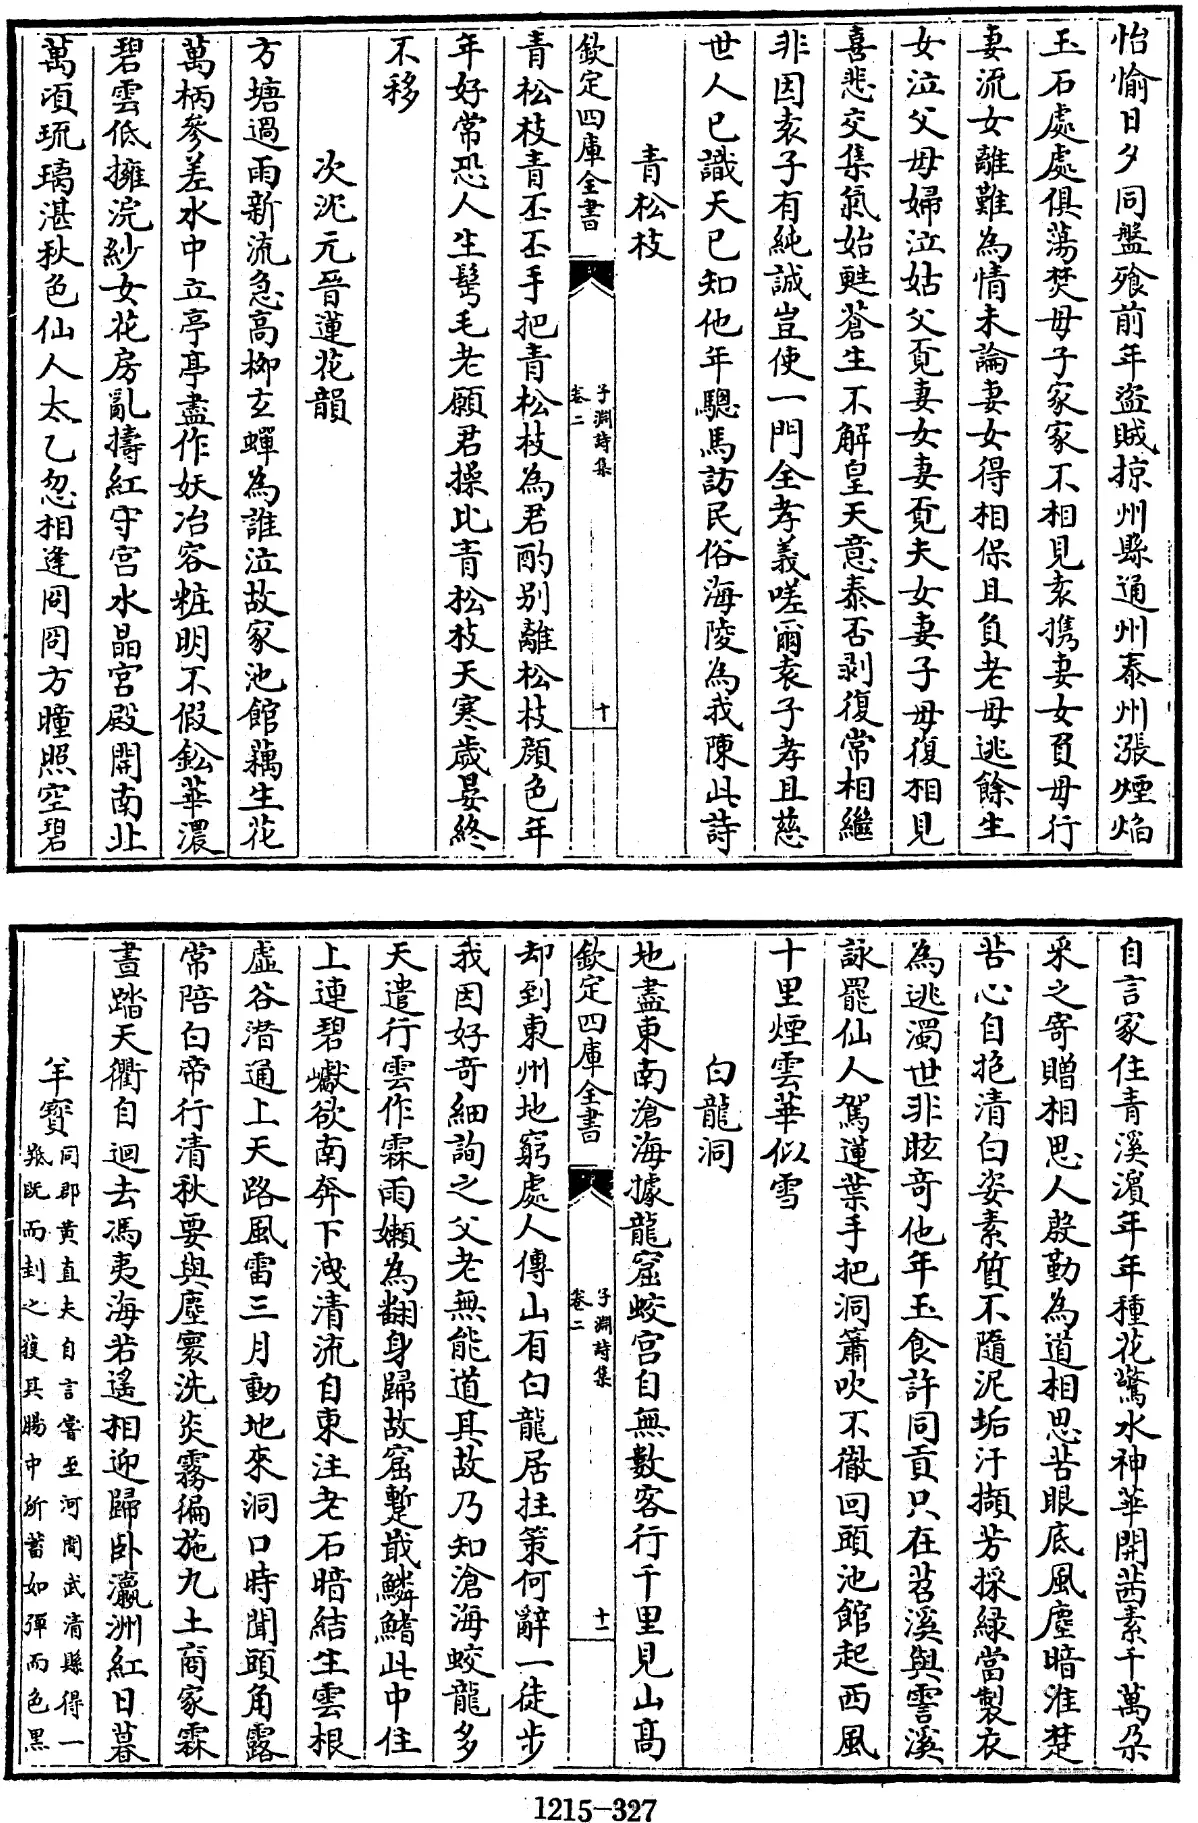 怡愉日夕同盤飱前年盜賊掠州縣通州泰州漲煙焰
玉石處處俱蕩焚母子家家不相見袁攜妻女負母行
妻流女離難為情未論妻女得相保且負老母逃餘生
女泣父母婦泣姑父覔妻女妻覔夫女妻子母復相見
喜悲交集氣始甦蒼生不解皇天意泰否剥復常相繼
非因袁子有純誠豈使一門全孝義嗟爾袁子孝且慈
世人已識天已知他年驄馬訪民俗海陵為我陳此詩
青松枝
欽定四庫全書
子淵詩集
卷二
十
青松枝青丕丕手把青松枝為君酌别離松枝顔色年
年好常恐人生髩毛老願君操比青松枝天寒歲晏終
不移
次沈元晉蓮花韻
方塘過雨新流急高柳玄蟬為誰泣故家池館藕生花
萬柄參差水中立亭亭盡作妖冶容粧明不假鈆華濃
碧雲低擁浣紗女花房亂擣紅守宫水晶宫殿開南北
萬頃琉璃湛秋色仙人太乙忽相逢囧囧方瞳照空碧
自言家住青溪濵年年種花驚水神華開茜素千萬朶
采之寄贈相思人慇勤為道相思苦眼底風塵暗淮楚
苦心自抱清白姿素質不隨泥垢汙擷芳採緑當製衣
為逃濁世非眩竒他年玉食許同貢只在苕溪與霅溪
詠罷仙人駕蓮葉手把洞簫吹不徹回頭池館起西風
十里煙雲華似雪
白龍洞
地盡東南滄海據龍窟蛟宫自無數客行千里見山高
欽定四庫全書
子淵詩集
卷二
十一
却到東州地窮處人傳山有白龍居拄策何辭一徒步
我因好竒細詢之父老無能道其故乃知滄海蛟龍多
天遣行雲作霖雨嬾為翻身歸故窟蹔戢鱗鰭此中住
上連碧巘欲南奔下洩清流自東注老石暗結生雲根
虚谷潛通上天路風雷三月動地來洞口時聞頭角露
常陪白帝行清秋要與塵寰洗炎霧徧施九土商家霖
晝踏天衢自迴去馮夷海若遙相迎歸卧瀛洲紅日暮
羊寶
同郡黄直夫自言嘗至河間武清縣得一
羖既而刲之獲其腸中所蓄如彈而色黒
1215-327